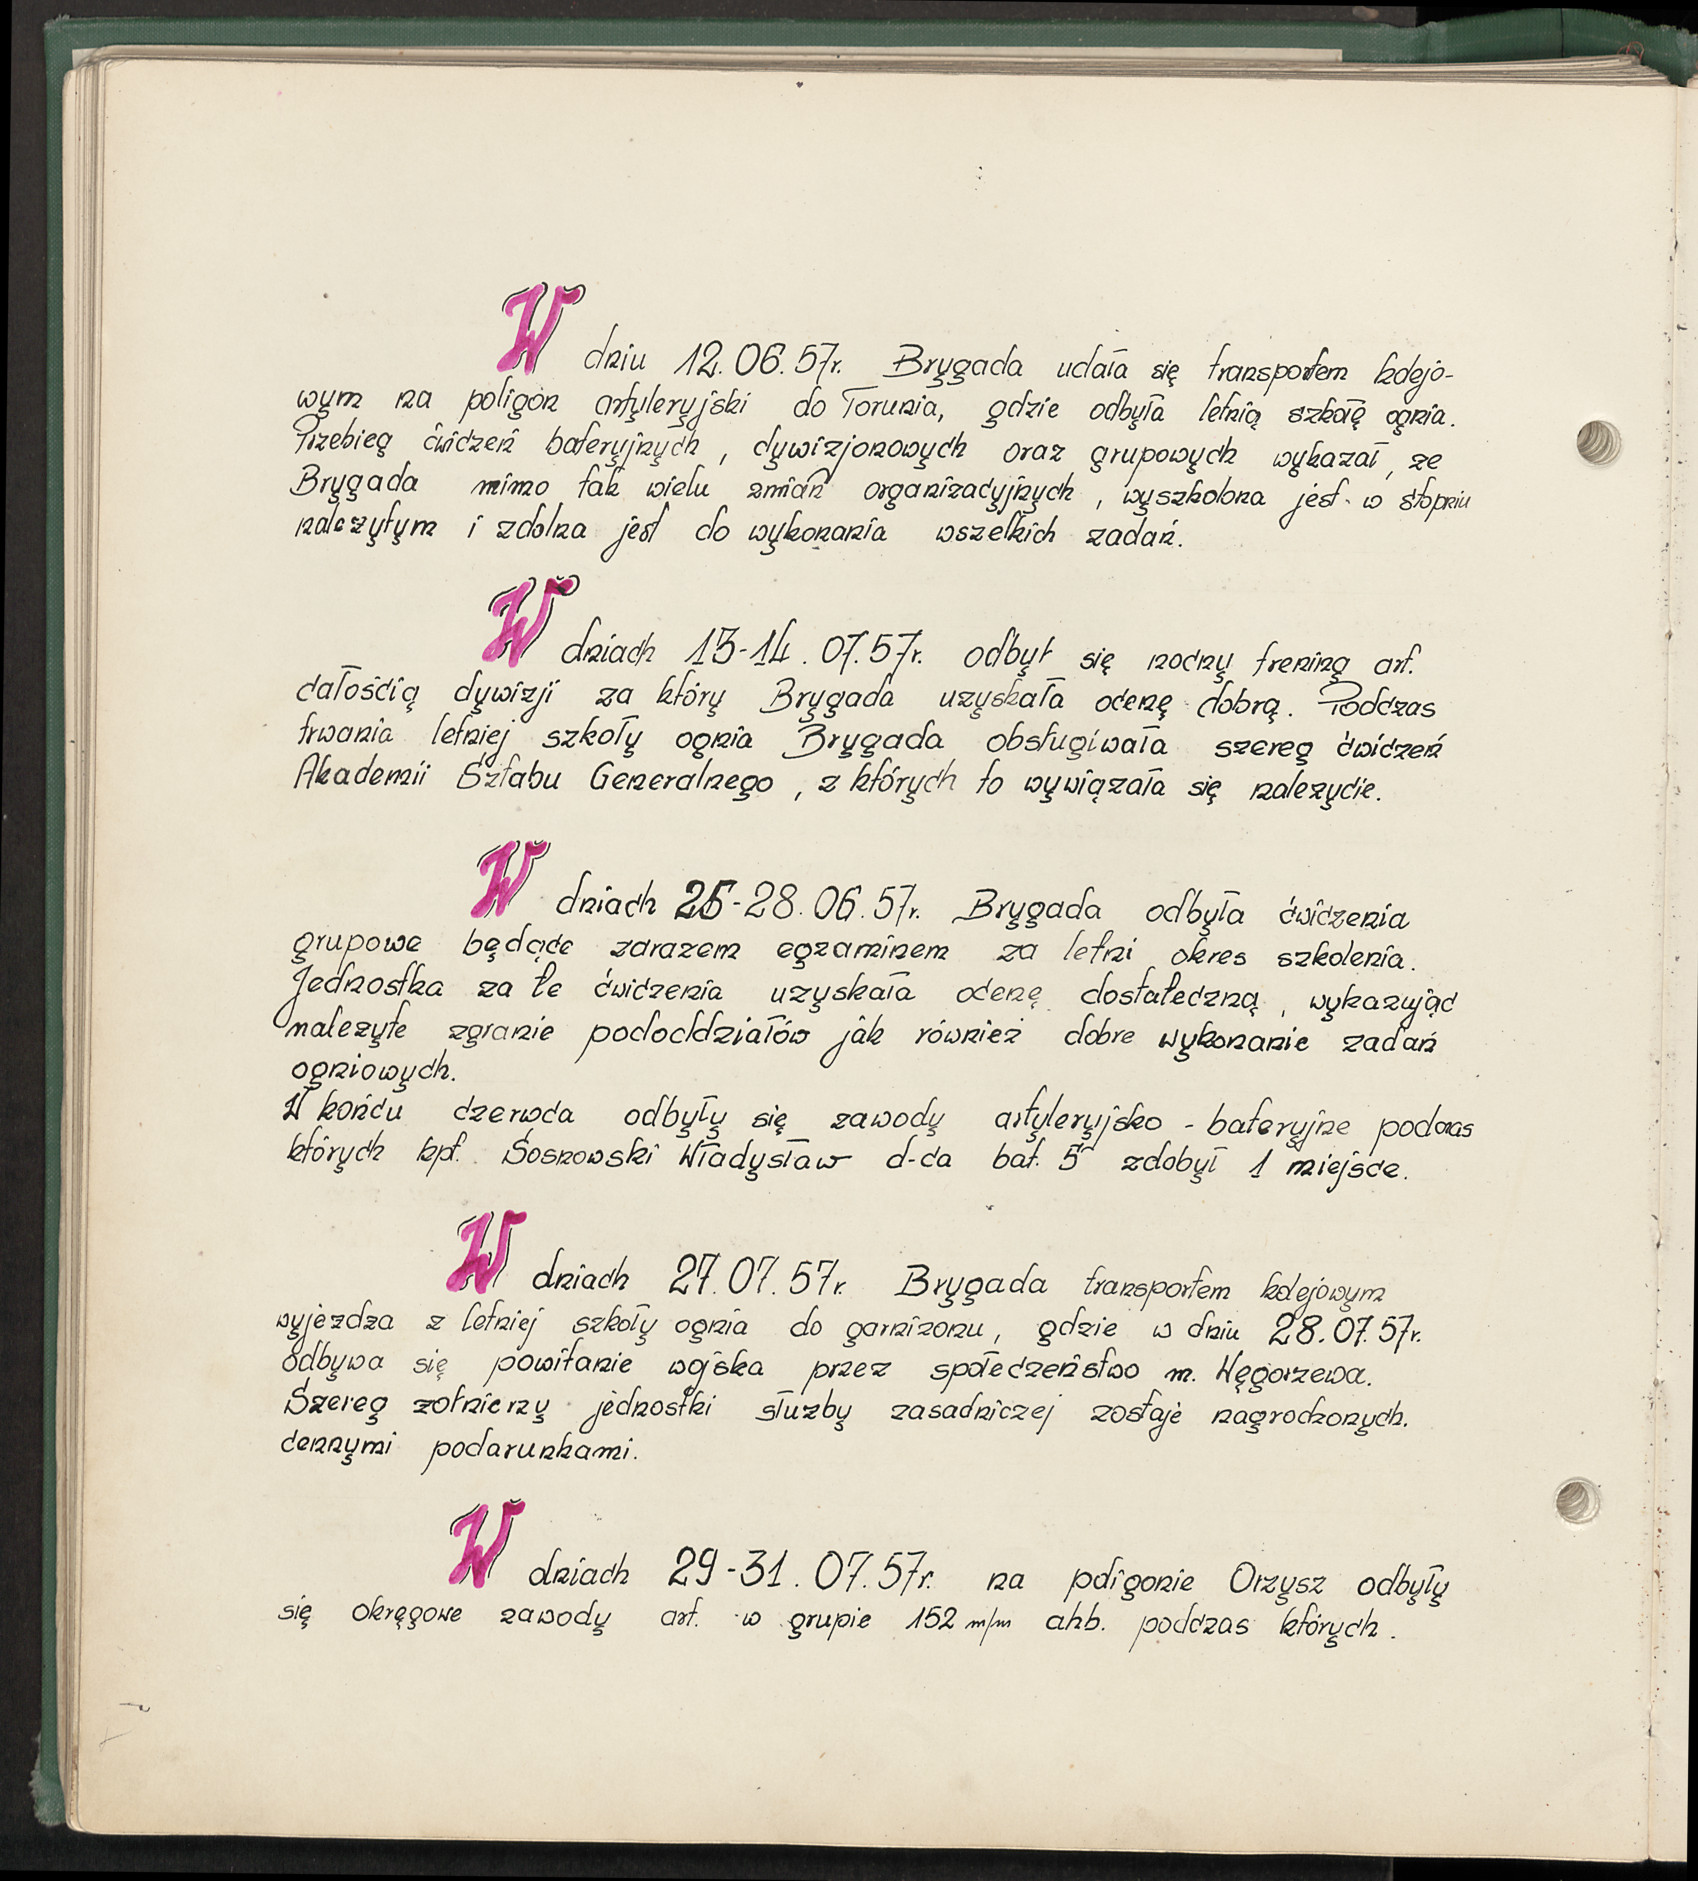 W dniu 12.06.57r. Brygada udała się transportem kolejo-
wym na poligon artyleryjski do Torunia, gdzie odbyła letnią szkołę ognia.
Przebieg ćwiczeń bateryjnych, dywizjonowych oraz grupowych wykazał, ze
Brygada mimo tak wielu zmian organizacyjnych, wyszkolona jest w stopniu
należytym i zdolna jest do wykonania wszelkich zadań.
W dniach 13-14.07.57r. odbył się nocny trening art.
całością dywizji za który Brygada uzyskała ocenę dobrą. Podczas
trwania letniej szkoły ognia Brygada obsługiwała szereg ćwiczeń
Akademii Sztabu Generalnego, z których to wywiązała się nalezycie.
W dniach 26-28.06.57r. Brygada odbyła ćwiczenia
grupowe będące zarazem egzaminem za letni okres szkolenia.
Jednostka za te ćwiczenia uzyskała ocenę dostateczną, wykazując
nalezyte zgranie pododdziałów jak również dobre wykonanie zadań
ogniowych.
W końcu czerwca odbyły się zawody artyleryjsko - bateryjne podczas
których kpt. Sosnowski Władysław d-ca bat. 5 zdobył 1 miejsce.
W dniach 27.07.57r. Brygada transportem kolejowym
wyjezdza z letniej szkoły ognia do garnizonu, gdzie w dniu 28.07.57r.
odbywa się powitanie wojska przez społeczeństwo m. Węgorzewa.
Szereg zołnierzy jednostki słuzby zasadniczej zostaje nagrodzonych.
cennymi podarunkami.
W dniach 29-31.07.57r. na poligonie Orzysz odbyły
się okręgowe zawody art. w grupie 152 m/m ahb. podczas których.